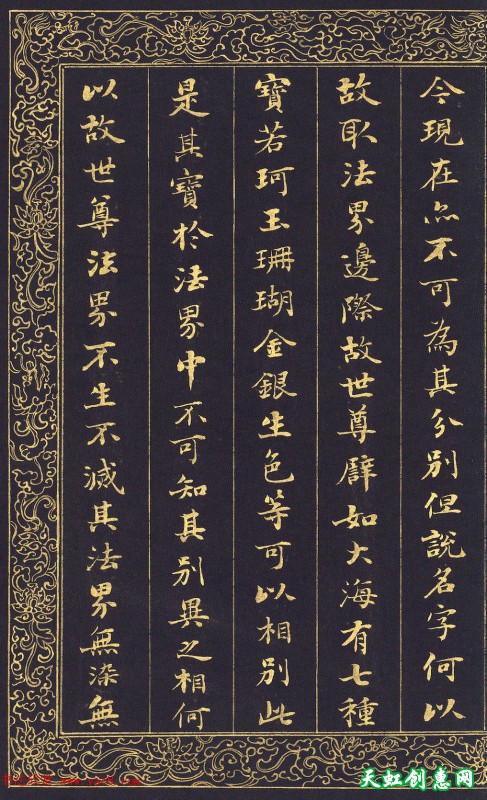 今現在亦不可為其分別但說名字何以
故取法界邊際故世尊譬如大海有七種
寶若珂玉珊瑚金銀生色等可以相別此
是其寶於法界中不可知其別異之相何
以故世尊法界不生不滅其法界無染無
天虹创惠网